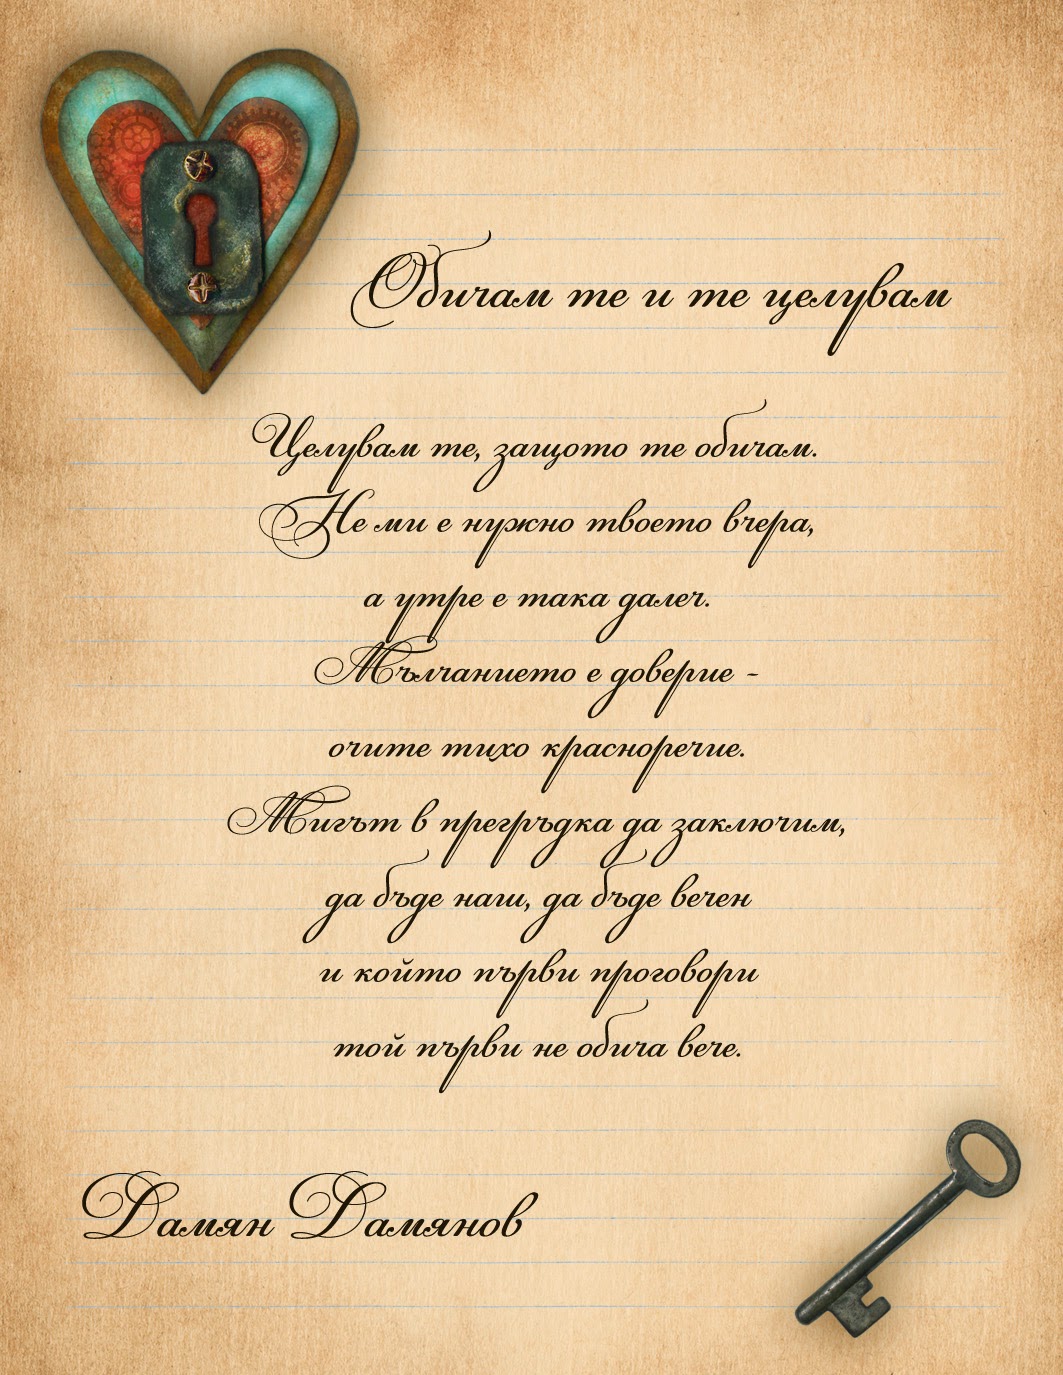 Обичам те и те целувам
Целувам те, защото те обичам.
Не ми е нужно твоето вчера,
а утре е така далеч.
Мълчанието е доверие -
очите тихо красноречие.
Мигът в прегръдка да заключим,
да бъде наш, да бъде вечен
и който първи проговори
той първи не обича вече.
Дамян Дамянов